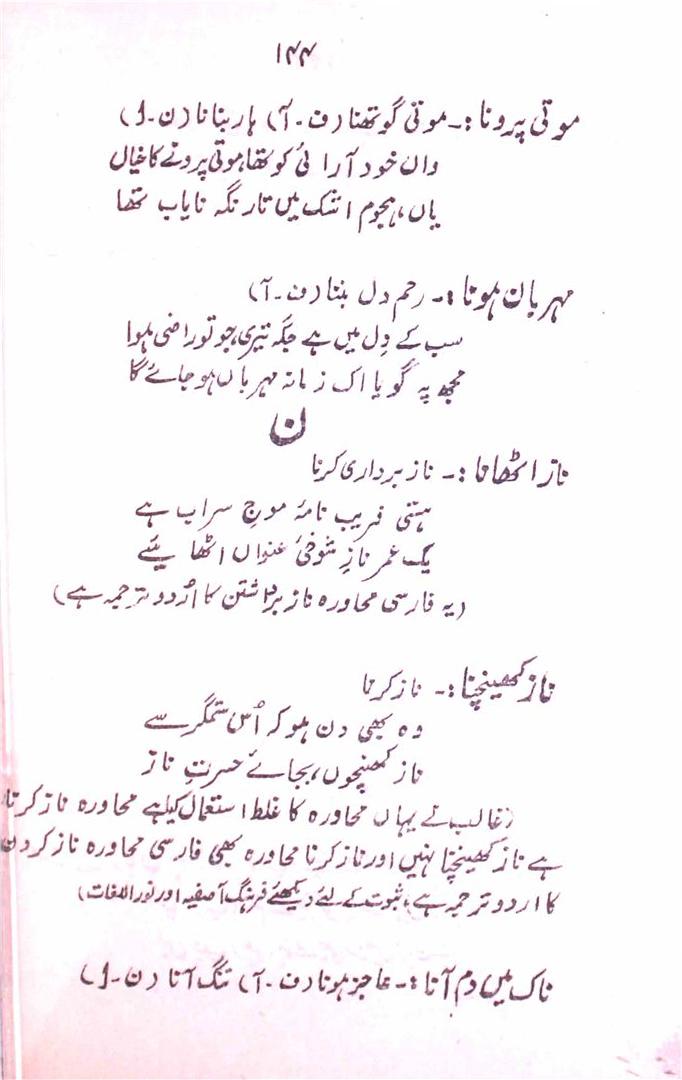 ۱۴۴
موتی پرونا :۔ موتی گوتھنا (ف۔آ) ہار بنانا (ن۔ل)
واں خود آرائی کو تھا موتی پرونے کا خیال
یاں ہجوم اشک میں تار نگہ نایاب تھا
مہربان ہونا :۔ رحم دل بننا (ف۔آ)
سب کے دِل میں ہے جگہ تیری، جو تو راضی ہوا
مجھ پہ گویا اک زمانہ مہرباں ہو جائے گا
ن
ناز اٹھانا :۔ ناز برداری کرنا
ہستی فریب نامۂ موجِ سراب ہے
یک عمر نازِ شوخیٔ عنواں اٹھایئے
(یہ فارسی محاورہ ناز برداشتن کا اُردو ترجمہ ہے)
ناز کھینچنا :۔ ناز کرنا
وہ بھی دن ہو کہ اُس ستمگر سے
ناز کھینچوں، بجائے حسرتِ ناز
(غالب نے یہاں محاورہ کا غلط استعمال کیا ہے محاورہ ناز کرنا
ہے ناز کھینچنا نہیں اور ناز کرنا محاورہ بھی فارسی محاورہ ناز کردن
کا اردو ترجمہ ہے، ثبوت کے لئے دیکھئے فرہنگ آصفیہ اور نور اللغات)
ناک میں دم آنا :۔ عاجز ہونا (ف۔آ) تنگ آنا (ن۔ل)